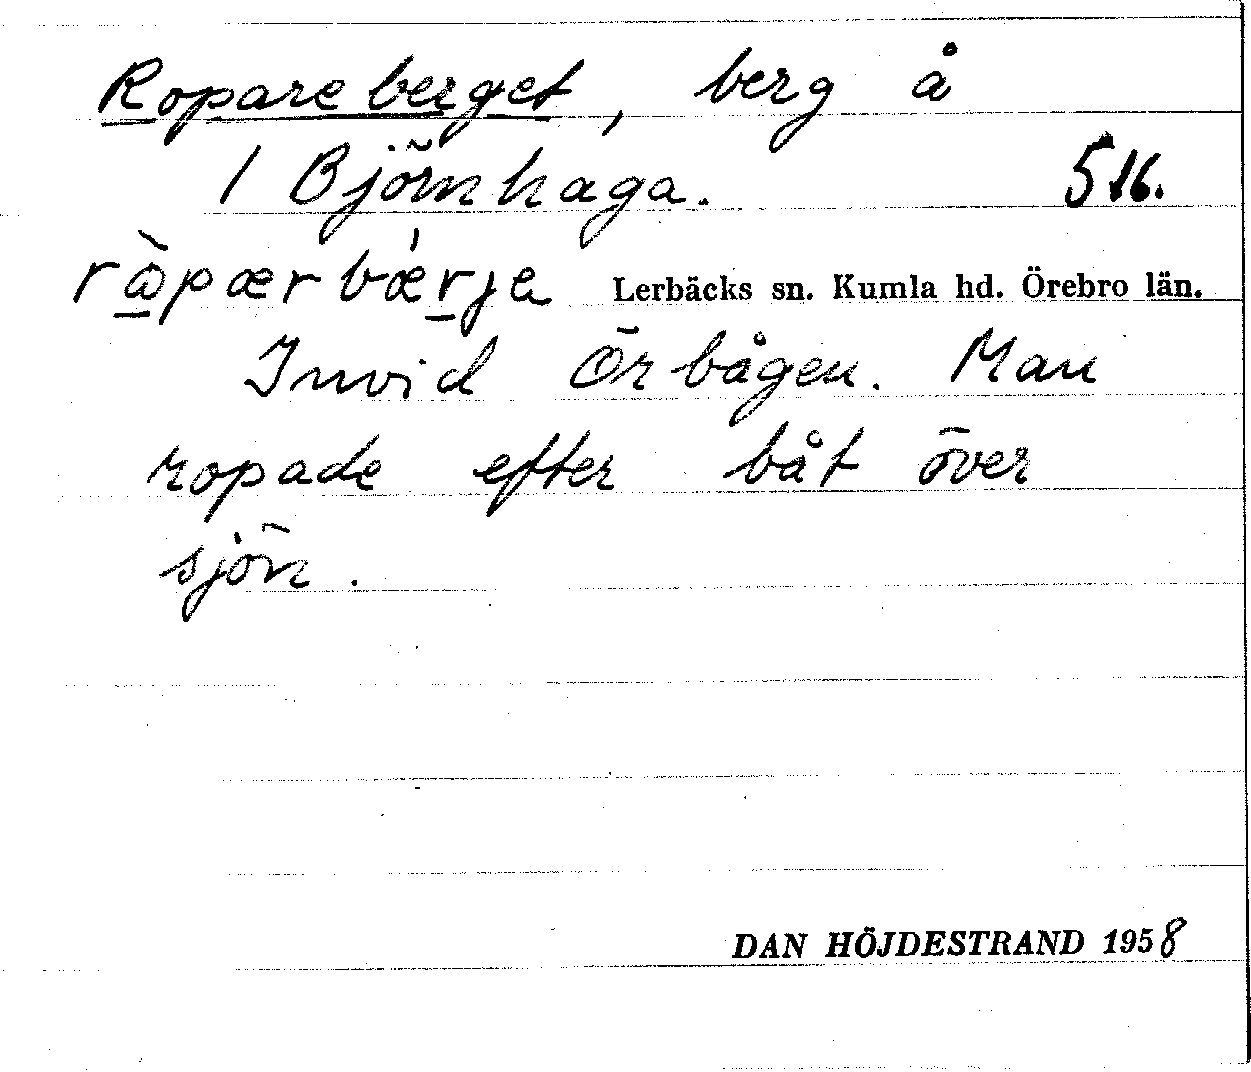 Ropareberget, berg å
1 Björnhaga. 516.
ròpær bǽrja Lerbäcks sn. Kumla hd. Örebro län.
Invid Örbågen. Man
ropade efter båt över
sjön.
DAN HÖJDESTRAND 1958